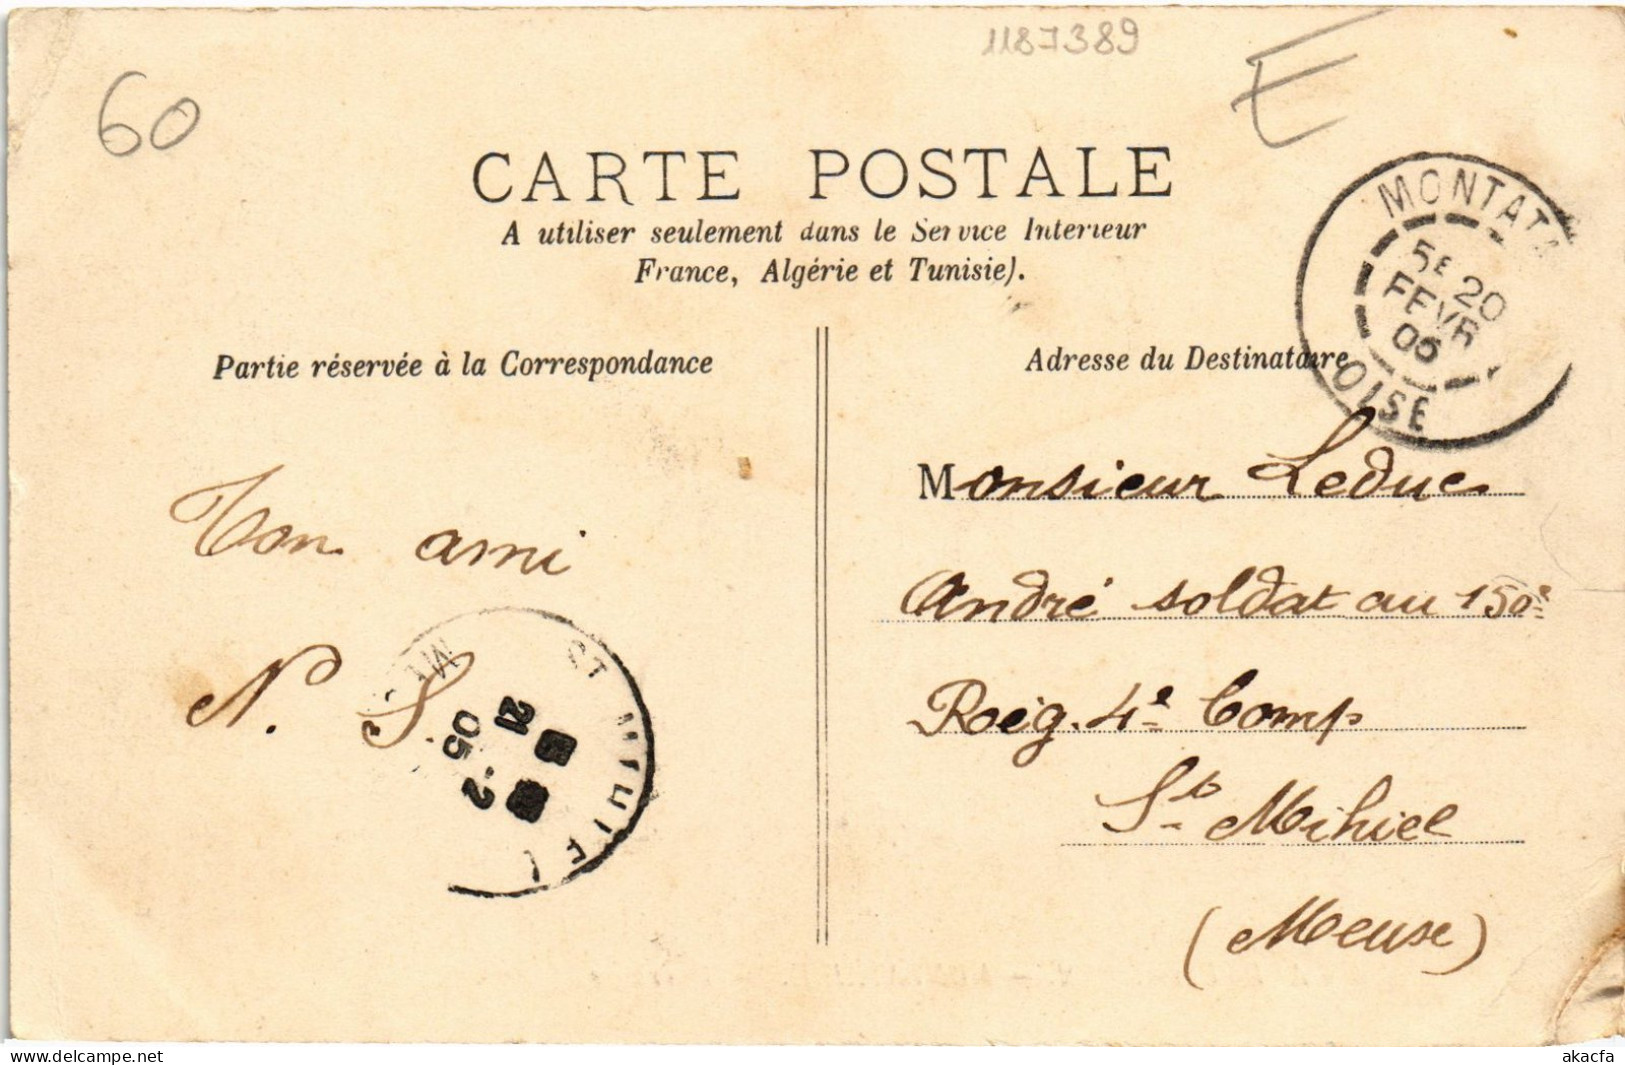 1187389
60
E
CARTE POSTALE
A utiliser seulement dans le Service Interieur
France, Algérie et Tunisie).
MONTATA
5E 20
FEVR
05
OISE
Partie réservée à la Correspondance
Adresse du Destinataire
Ton ami
N. S.
ST MIHIEL
21
-2
05
Monsieur Leduc
André soldat au 150e
Reig. 4e Comp
St Mihiel
(Meuse)
akpool.co.uk / akacfa